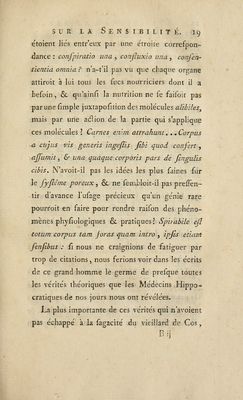 SUR LA SENSIBILITÉ. 19
étoient liés entr'eux par une étroite correspon-
dance : conspiratio una, confluxio una, consen-
tientia omnia ? n'a-t'il pas vu que chaque organe
attiroit à lui tous les sucs nourriciers dont il a
besoin, & qu'ainsi la nutrition ne se faisoit pas
par une simple juxtaposition des molécules alibiles,
mais par une action de la partie qui s'applique
ces molécules ! Carnes enim attrahunt... Corpus
a cujus vis generis ingestis sibi quod confert,
assumit, & una quaque corporis pars de singulis
cibis. N'avoit-il pas les idées les plus saines sur
le systême poreux, & ne sembloit-il pas pressen-
tir d'avance l'usage précieux qu'un génie rare
pourroit en faire pour rendre raison des phéno-
mènes physiologiques & pratiques? Spirabile est
totum corpus tam foras quam intro, ipsis etiam
sensibus : si nous ne craignions de fatiguer par
trop de citations, nous ferions voir dans les écrits
de ce grand homme le germe de presque toutes
les vérités théoriques que les Médecins Hippo-
cratiques de nos jours nous ont révélées.
La plus importante de ces vérités qui n'avoient
pas échappé à la sagacité du vieillard de Cos,
B ij